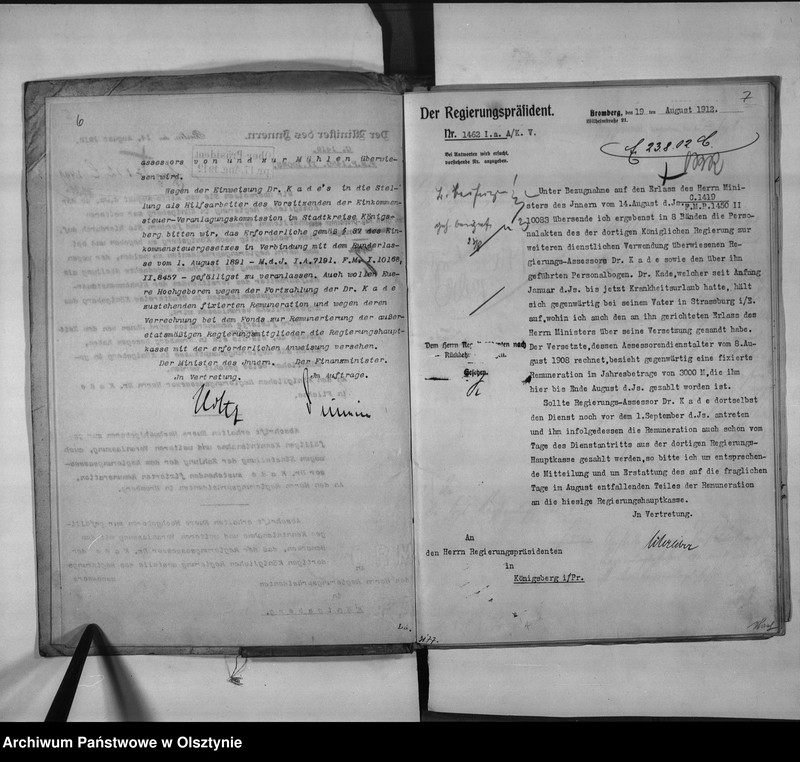 6
assessors von und zur Mühlen überwie-
sen wird.
Wegen der Einweisung Dr. Kade's in die Stel-
lung als Hilfsarbeiter des Vorsitzenden der Einkommen-
steuer-Veranlagungskommission im Stadtkreise Königs-
berg bitten wir, das Erforderliche gemäß § des Ein-
kommensteuergesetzes in Verbindung mit dem Runderlas-
se vom 1. August 1891 - M.d.J. I.A.7191. F.M. I.10166,
II.8457 - gefälligst zu veranlassen. Auch wollen Eue-
re Hochgeboren wegen der Fortzahlung der Dr. Kade
zustehenden fixierten Remuneration und wegen deren
Verrechnung bei dem Fonds zur Remunerierung der außer-
etatsmäßigen Regierungsmitglieder die Regierungshaupt-
kasse mit der erforderlichen Anweisung versehen.
Der Minister des Innern. Der Finanzminister.
Jn Vertretung. Jm Auftrage.
Holtz
7
Der Regierungspräsident.
Bromberg, den 19 ten August 1912.
Wilhelmstraße 21.
Nr. 1462 I.a. A/K. V.
Bei Antworten wird ersucht,
vorstehende Nr. anzugeben.
23.8.02
Unter Bezugnahme auf den Erlass des Herrn Mini-
sters des Jnnern vom 14.August d.Js.
C.1419
F.M.P.I 1450 II
10083 übersende ich ergebenst in 8 Bänden die Perso-
nalakten des der dortigen Königlichen Regierung zur
weiteren dienstlichen Verwendung überwiesenen Re-
gierungs-Assessors Dr. Kade sowie den über ihn
geführten Personalbogen. Dr. Kade, welcher seit Anfang
Januar d.Js. bis jetzt Krankheitsurlaub hatte, hält
sich gegenwärtig bei seinem Vater in Strassburg i/E.
auf, wohin ich auch den an ihn gerichteten Erlass des
Herrn Ministers über seine Versetzung gesandt habe.
Der Versetzte, dessen Assessordienstalter vom 8.Au-
gust 1908 rechnet, bezieht gegenwärtig eine fixierte
Remuneration im Jahresbetrage von 3000 M, die ihm
hier bis Ende August d.Js. gezahlt worden ist.
Dem Herrn nach
Rückkehr
Gesehen.
Sollte Regierungs-Assessor Dr. Kade dortselbst
den Dienst noch vor dem 1.September d.Js. antreten
und ihm infolgedessen die Remuneration auch schon vom
Tage des Dienstantritts aus der dortigen Regierungs-
Hauptkasse gezahlt werden, so bitte ich um entsprechen-
de Mitteilung und um Erstattung des auf die fraglichen
Tage im August entfallenden Teiles der Remuneration
an die hiesige Regierungshauptkasse.
Jn Vertretung.
An
den Herrn Regierungspräsidenten
in
Königsberg i/Pr.
Archiwum Państwowe w Olsztynie